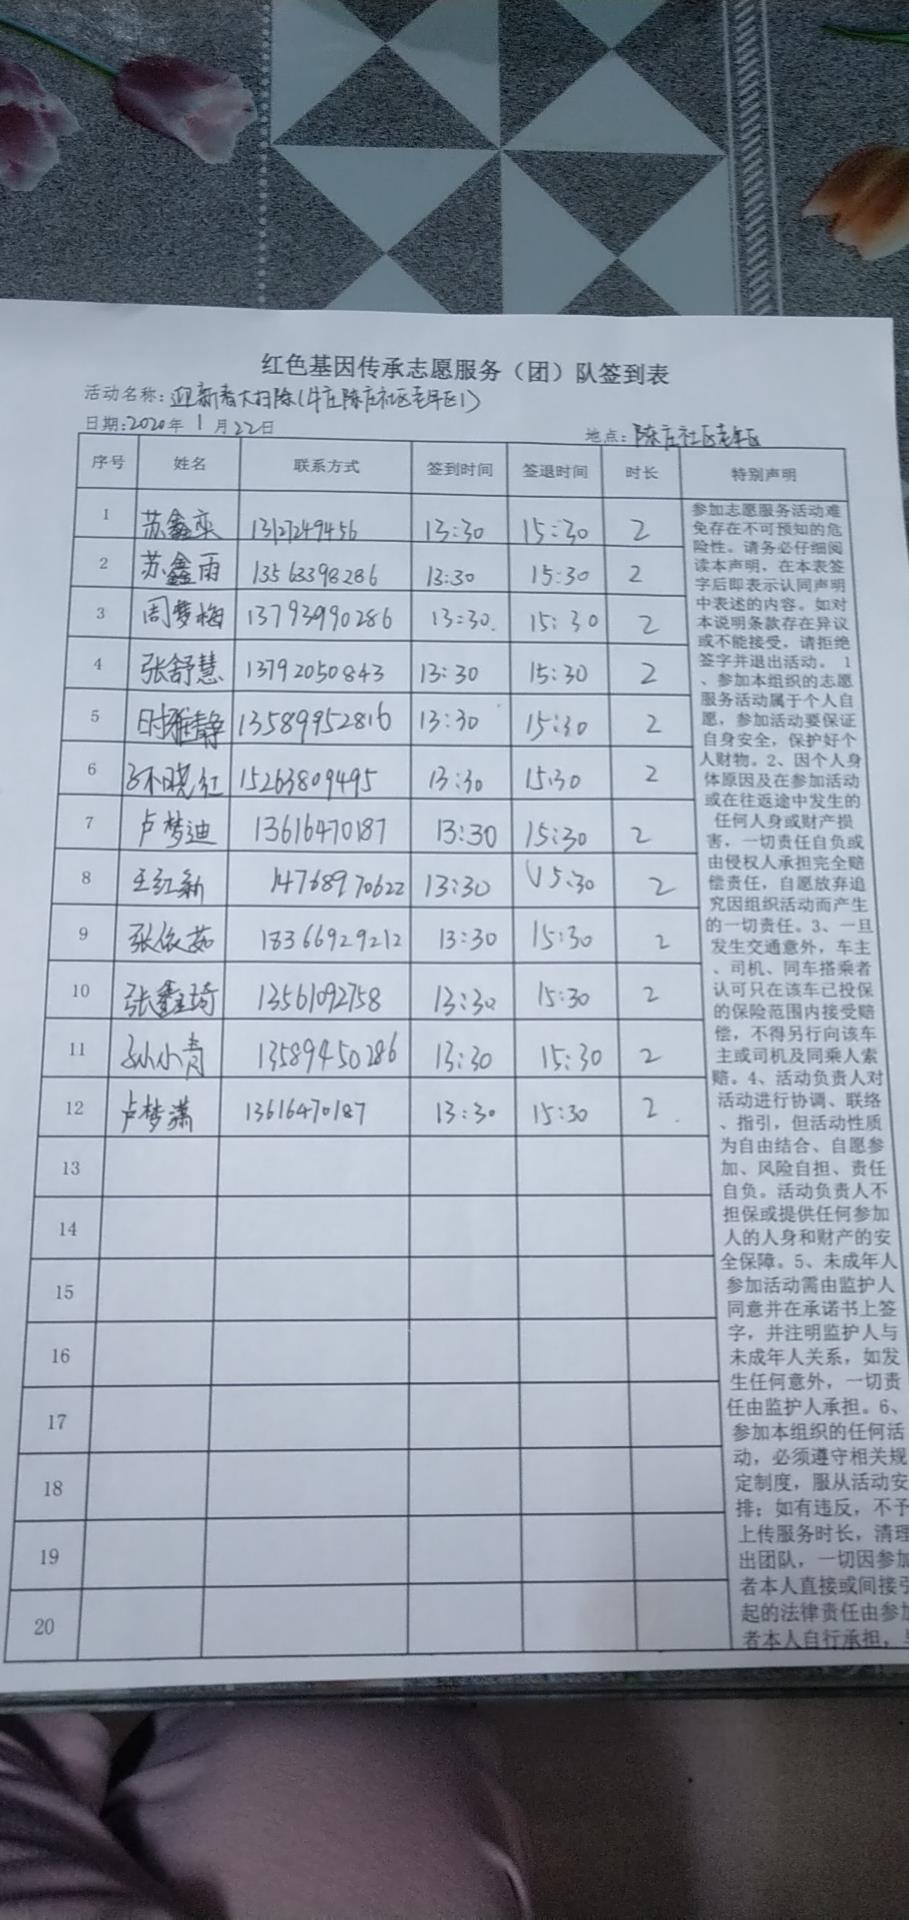 红色基因传承志愿服务（团）队签到表
活动名称：迎新春大扫除(牛庄陈庄社区老年区1)
日期：2020年 1 月 22日
地点：陈庄社区老年区
序号 姓名 联系方式 签到时间 签退时间 时长 特别声明
1 苏鑫 13:30 15:30 2
2 苏鑫雨 13563398286 13:30 15:30 2
3 周梦梅 13793990286 13:30. 15:30 2
4 张舒慧 13792050843 13:30 15:30 2
5 时雅静 13589952816 13:30 15:30 2
6 孙晓红 15263809495 13:30 15:30 2
7 卢梦迪 13616470187 13:30 15:30 2
8 王红新 14768970622 13:30 15:30 2
9 张依茹 18366929212 13:30 15:30 2
10 张鑫琦 13561092758 13:30 15:30 2
11 孙小青 13589450286 13:30 15:30 2
12 卢梦潇 13616470187 13:30 15:30 2
13
14
15
16
17
18
19
20
参加志愿服务活动难
免存在不可预知的危
险性。请务必仔细阅
读本声明，在本表签
字后即表示认同声明
中表述的内容。如对
本说明条款存在异议
或不能接受，请拒绝
签字并退出活动。 1
、参加本组织的志愿
服务活动属于个人自
愿，参加活动要保证
自身安全，保护好个
人财物。2、因个人身
体原因及在参加活动
或在往返途中发生的
任何人身或财产损
害，一切责任自负或
由侵权人承担完全赔
偿责任，自愿放弃追
究因组织活动而产生
的一切责任。3、一旦
发生交通意外，车主
、司机、同车搭乘者
认可只在该车已投保
的保险范围内接受赔
偿，不得另行向该车
主或司机及同乘人索
赔。4、活动负责人对
活动进行协调、联络
、指引，但活动性质
为自由结合、自愿参
加、风险自担、责任
自负。活动负责人不
担保或提供任何参加
人的人身和财产的安
全保障。5、未成年人
参加活动需由监护人
同意并在承诺书上签
字，并注明监护人与
未成年人关系，如发
生任何意外，一切责
任由监护人承担。6、
参加本组织的任何活
动，必须遵守相关规
定制度，服从活动安
排；如有违反，不予
上传服务时长，清理
出团队，一切因参加
者本人直接或间接引
起的法律责任由参加
者本人自行承担，